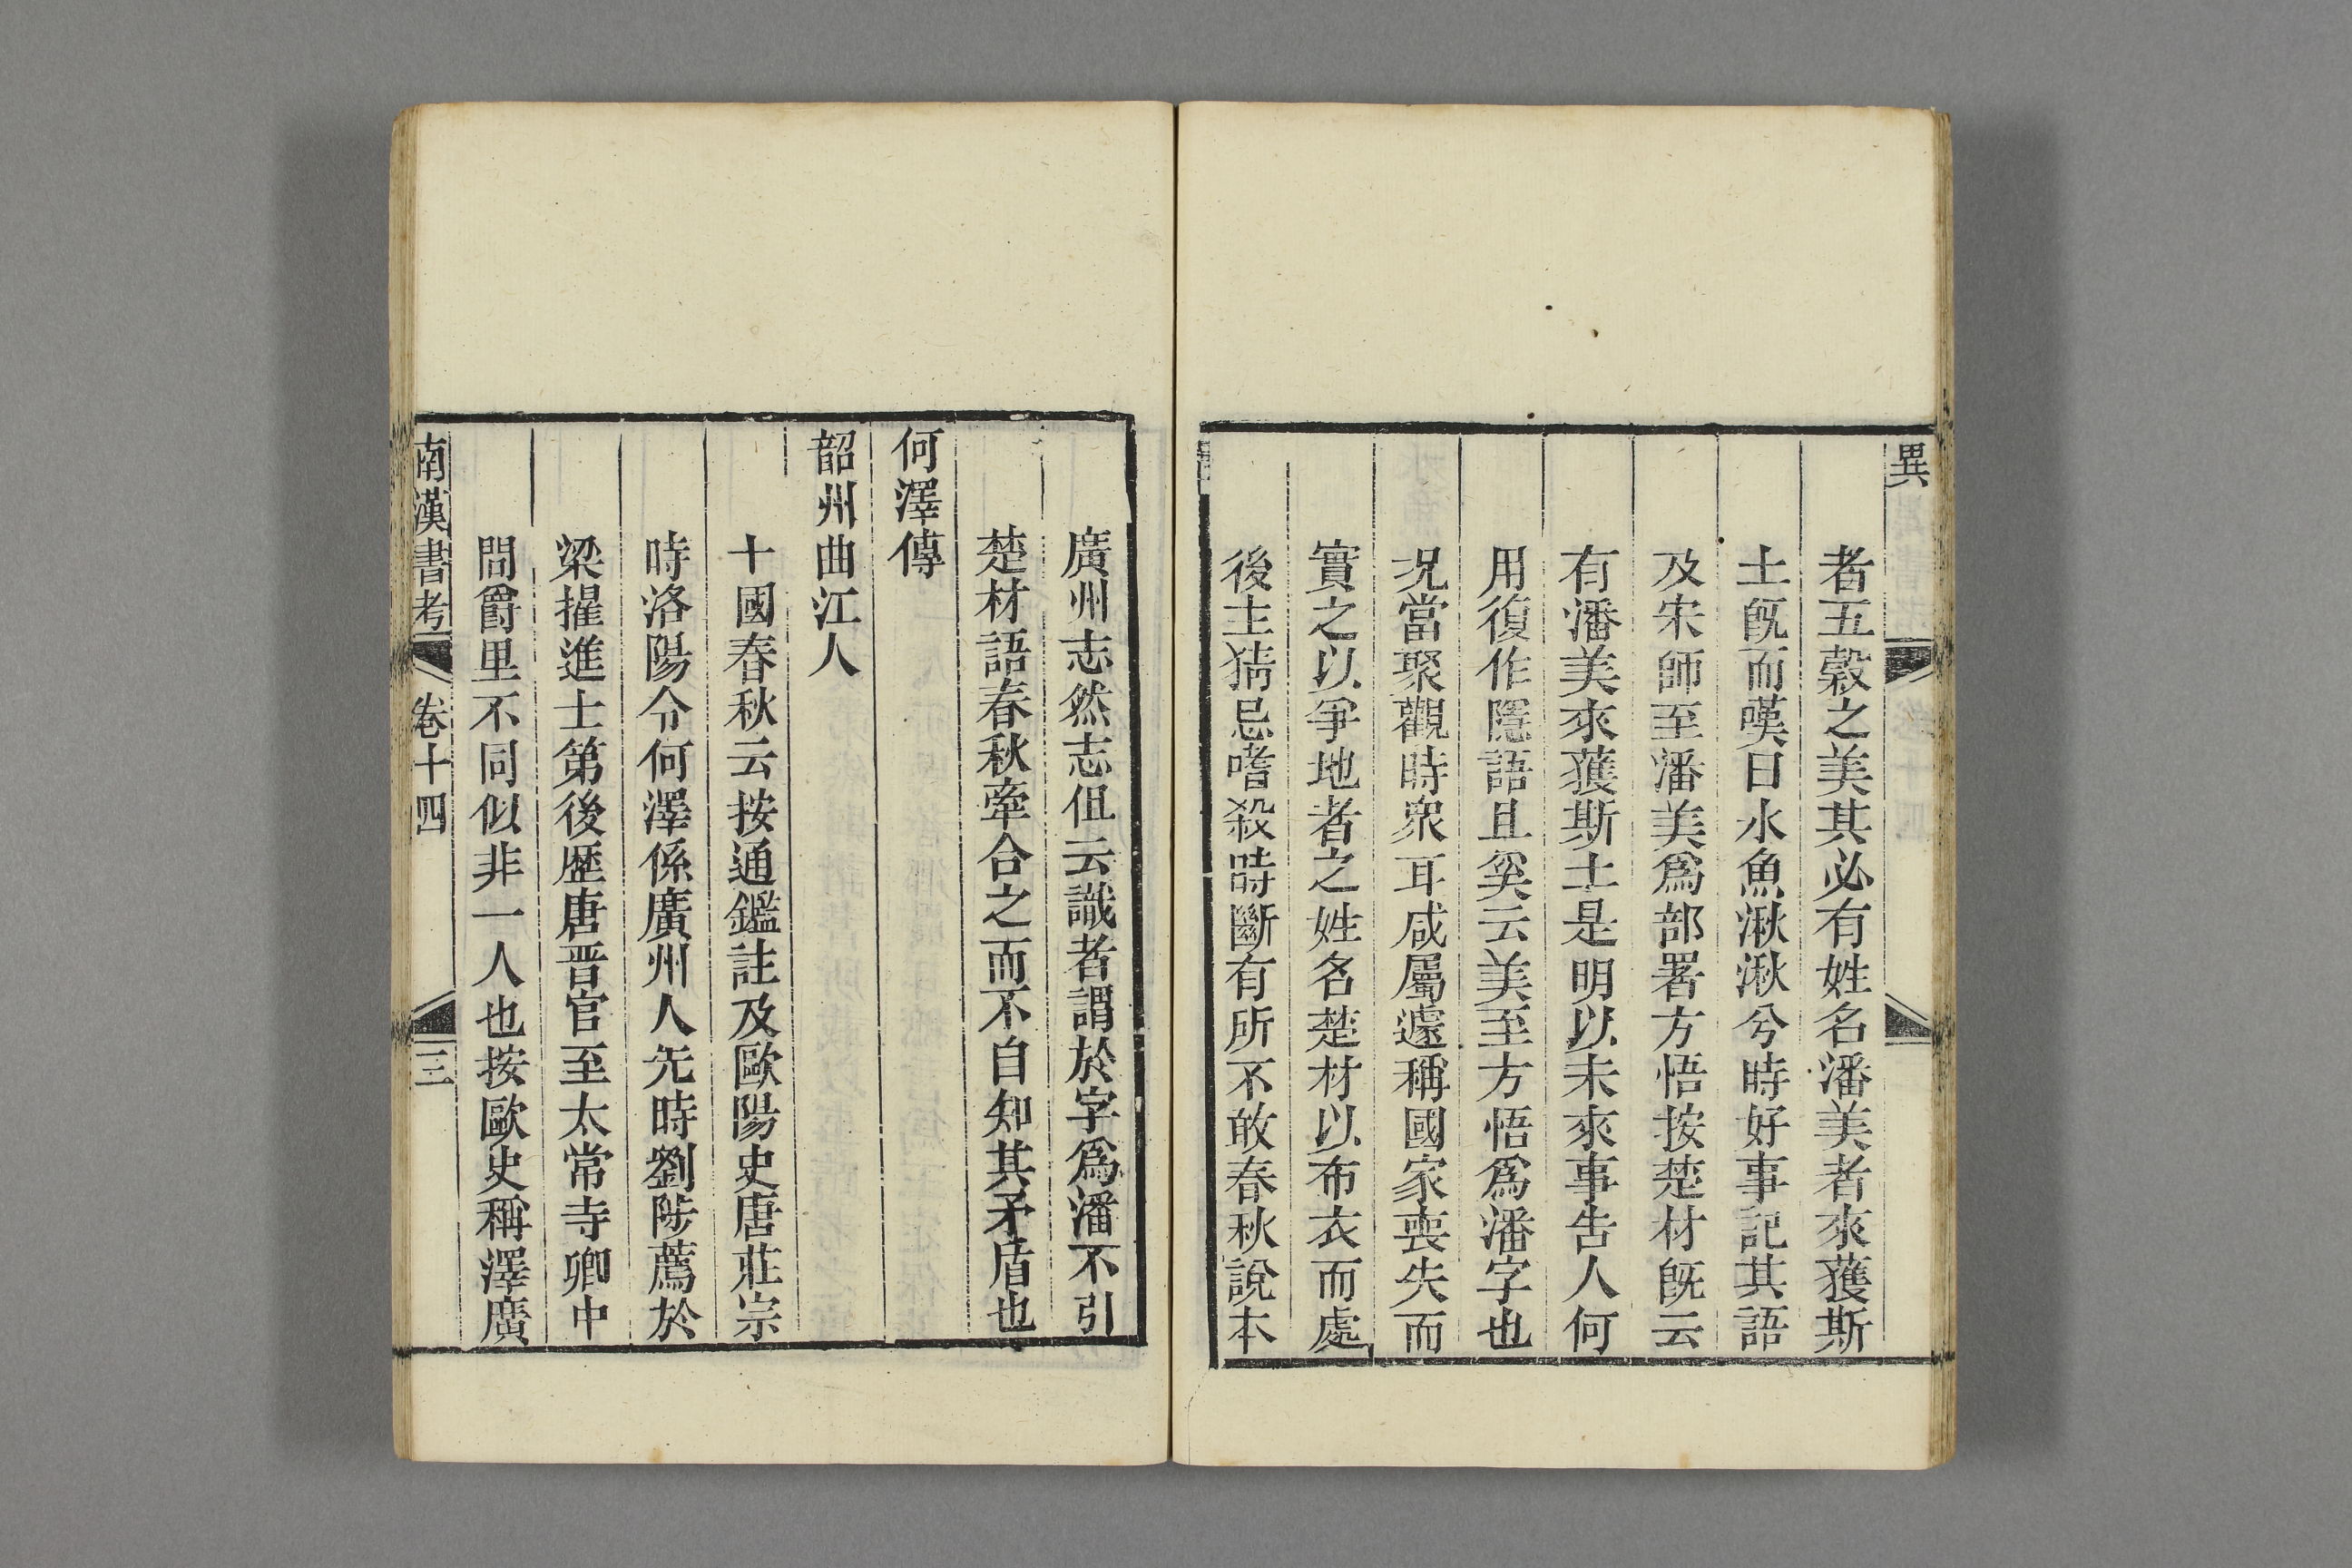 異
者五穀之美其必有姓名潘美者來獲斯
土旣而嘆曰水魚湫湫兮時好事記其語
及宋師至潘美爲部署方悟按楚材旣云
有潘美來獲斯土是明以未來事告人何
用復作隱語且奚云美至方悟爲潘字也
况當聚觀時衆耳咸屬遽稱國家喪失而
實之以爭地者之姓名楚材以布衣而處
後主猜忌嗜殺時斷有所不敢春秋說本
廣州志然志但云識者謂於字爲潘不引
楚材語春秋牽合之而不自知其矛盾也
何澤傳
韶州曲江人
十國春秋云按通鑑註及歐陽史唐莊宗
時洛陽令何澤係廣州人先時劉陟薦於
梁擢進士第後歷唐晋官至太常寺卿中
問爵里不同似非一人也按歐史稱澤廣
南漢書考 卷十四 三